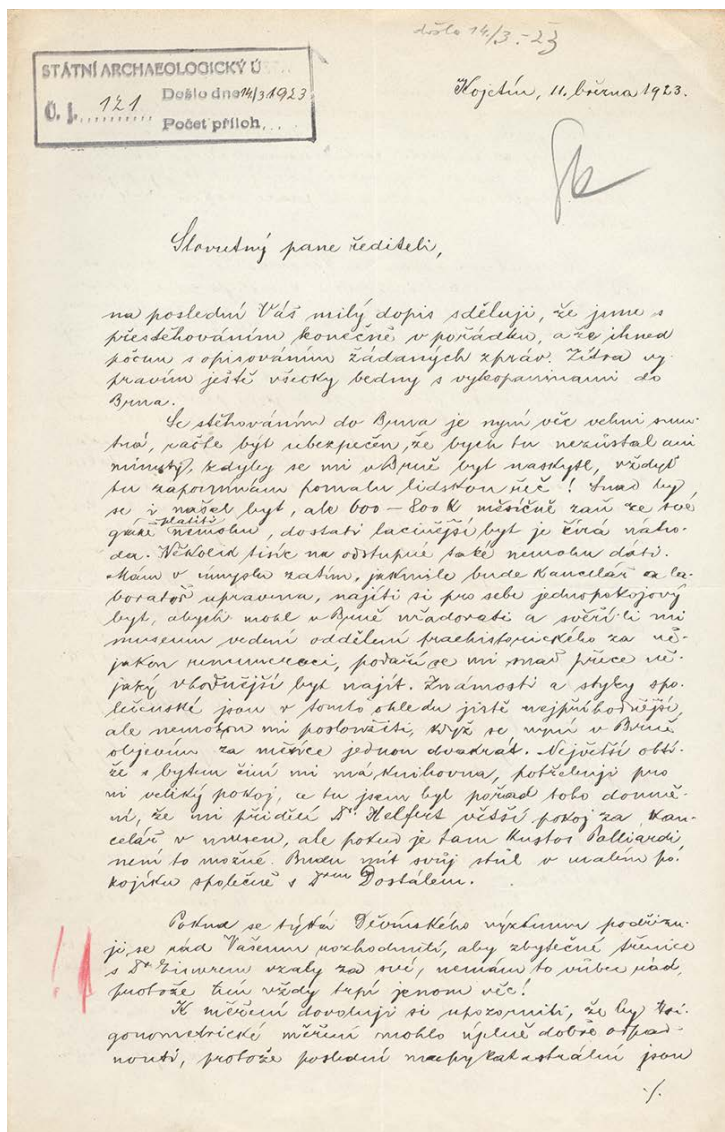 došlo 14./3.-23
STÁTNÍ ARCHAEOLOGICKÝ Ú
Došlo dne 14/3 1923
Č. j. 121
Počet příloh
Kojetín, 11. března 1923.
Slovutný pane řediteli,
na poslední Váš milý dopis sděluji, že jsme s
přestěhováním konečně v pořádku, a že ihned
počnu s opisováním žádaných zpráv. Zítra vy-
pravím ještě všecky bedny s vykopaninami do
Brna.
Se stěhováním do Brna je nyní věc velmi smu-
tná, račte být ubezpečen, že bych tu nezůstal ani
minuty, kdyby se mi v Brně byt naskytl, vždyť
tu zapomínám pomalu lidskou řeč! Snad by
se i našel byt, ale 600-800 K měsíčně zaň ze své
gáže platiti nemohu, dostati lacinější byt je čirá náho-
da. Několik tisíc na odstupné také nemohu dáti.
Mám v úmyslu zatím, jakmile bude kancelář a la-
boratoř upravena, najíti si pro sebe jednopokojový
byt, abych mohl v Brně úřadovati a svěří-li mi
museum vedení oddělení praehistorického za ně-
jakou remuneraci, podaří se mi snad přece ně-
jaký vhodnější byt najít. Známosti a styky spo-
lečenské jsou v tomto ohledu jistě nejpříhodnější,
ale nemohou mi posloužiti, když se nyní v Brně
objevím za měsíc jednou dvakrát. Největší obtí-
že s bytem činí mi má knihovna, potřebuji pro
ni veliký pokoj, a tu jsem byl pořád toho domně-
ní, že mi přidělí Dr Helfert větší pokoj za kan-
celář v museu, ale pokud je tam kustos Palliardi,
není to možné. Budu mít svůj stůl v malém po-
kojíku společně s Drem Dostálem.
Pokud se týká Děvínského výzkumu podřizu-
ji se rád Vašemu rozhodnutí, aby zbytečné třenice
s Dr Eisnerem vzaly za své, nemám to vůbec rád,
protože tím vždy trpí jenom věc!
K měření dovoluji si upozorniti, že by tri-
gonometrické měření mohlo úplně dobře odpad-
nouti, protože poslední mapy katastrální jsou
./.